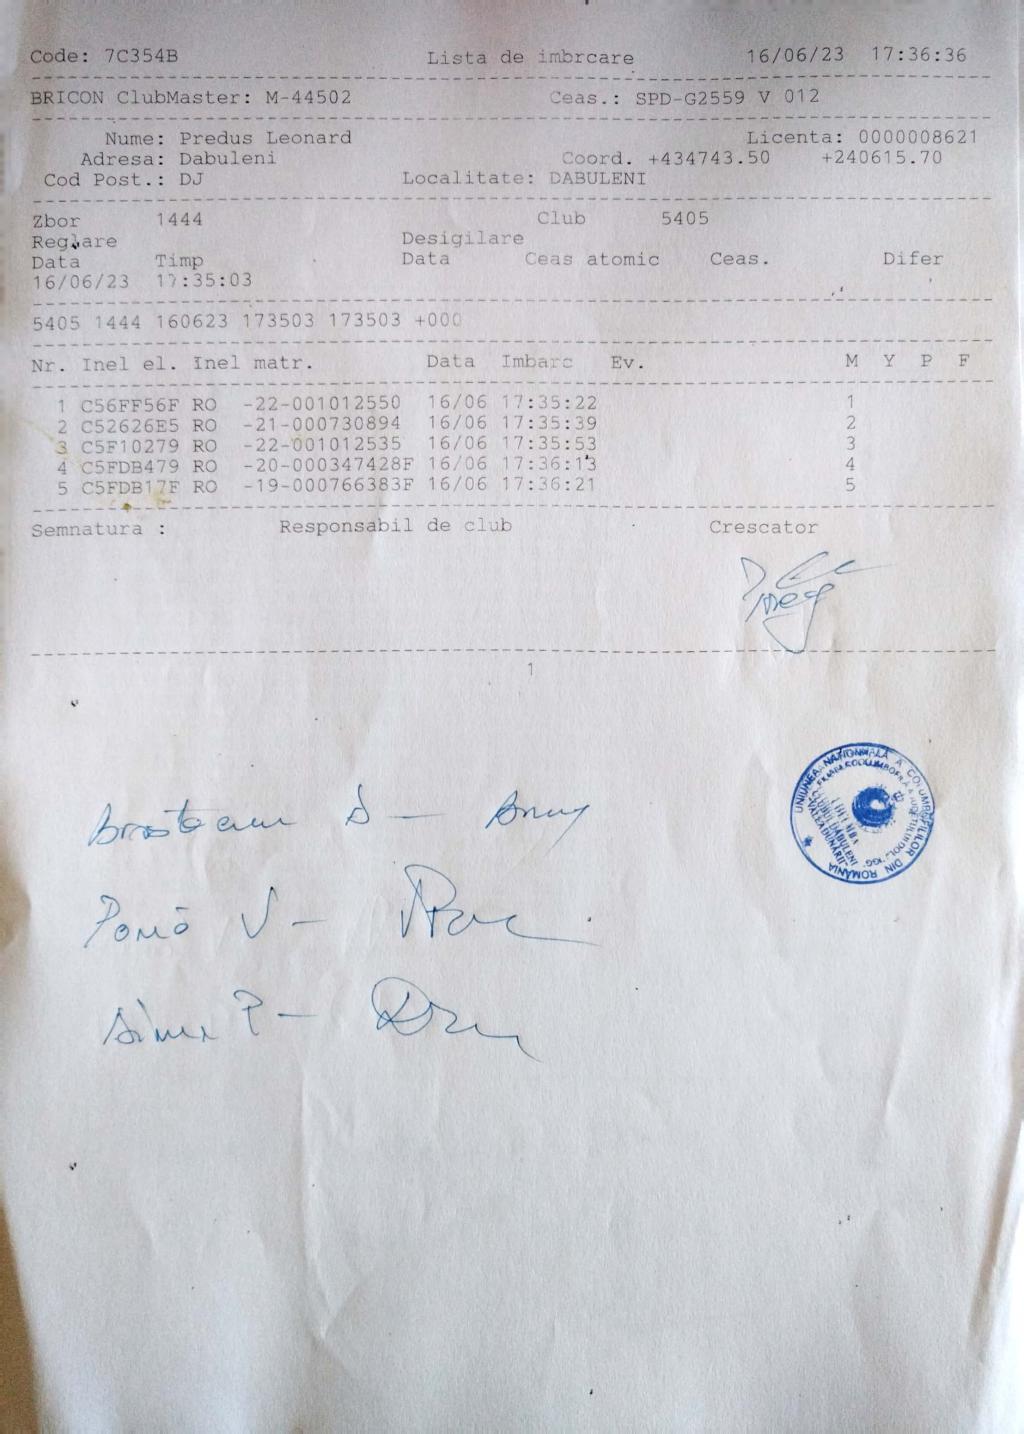 Code: 7C354B Lista de imbrcare 16/06/23 17:36:36
BRICON ClubMaster: M-44502 Ceas.: SPD-G2559 V 012
Nume: Predus Leonard Licenta: 0000008621
Adresa: Dabuleni Coord. +434743.50 +240615.70
Cod Post.: DJ Localitate: DABULENI
Zbor 1444 Club 5405
Reglare Desigilare
Data Timp Data Ceas atomic Ceas. Difer
16/06/23 17:35:03
5405 1444 160623 173503 173503 +000
Nr. Inel el. Inel matr. Data Imbarc Ev. M Y P F
1 C56FF56F RO -22-001012550 16/06 17:35:22 1
2 C52626E5 RO -21-000730894 16/06 17:35:39 2
3 C5F10279 RO -22-001012535 16/06 17:35:53 3
4 C5FDB479 RO -20-000347428F 16/06 17:36:13 4
5 C5FDB17F RO -19-000766383F 16/06 17:36:21 5
Semnatura : Responsabil de club Crescator
1
UNIUNEA NATIONALĂ A COLUMBOFILILOR DIN ROMÂNIA
CLUBUL DABULENI
V —
P —